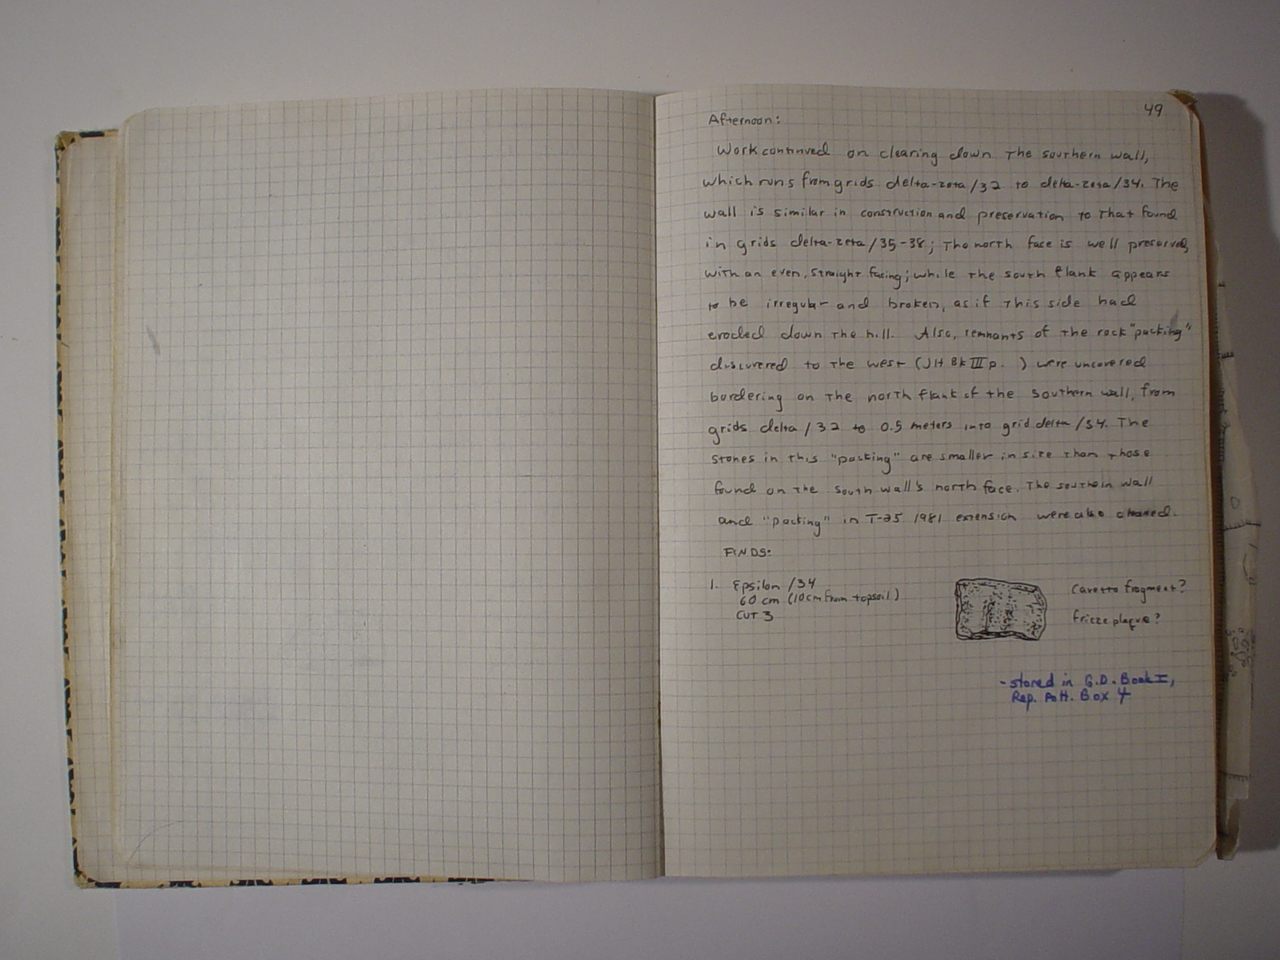 49
Afternoon:
Work continued on clearing down the southern wall,
which runs from grids delta-zeta/32 to delta-zeta/34. The
wall is similar in construction and preservation to that found
in grids delta-zeta/35-38; the north face is well preserved,
with an even, straight facing; while the south flank appears
to be irregular and broken, as if this side had
eroded down the hill. Also, remnants of the rock "packing"
discovered to the west (JH Bk III p. ) were uncovered
bordering on the north flank of the southern wall, from
grids delta/32 to 0.5 meters into grid delta/34. The
stones in this "packing" are smaller in size than those
found on the south wall's north face. The southern wall
and "packing" in T-25 1981 extension were also cleaned.
FINDS:
1. Epsilon/34
60 cm (10 cm from topsoil)
CUT 3
Cavetto fragment?
frieze plaque?
- stored in G.D. Book I,
Rep. Pott. Box 4